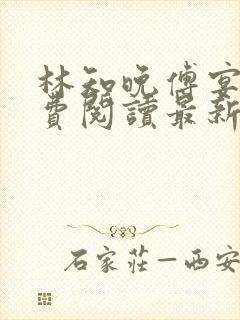 林知晚傅宴
費閱讀最新
石家莊—西安